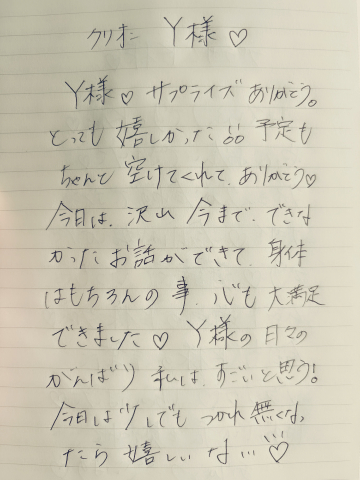 クリオネ Y様♡
Y様♡サプライズありがとう。
とっても嬉しかった!!予定も
ちゃんと空けてくれて、ありがとう♡
今日は、沢山今まで、できな
かったお話ができて、身体
はもちろんの事、心も大満足
できました♡ Y様の日々の
がんばり私は、すごいと思う!
今日は少しでもつかれ無くなっ
たら嬉しいな…♡